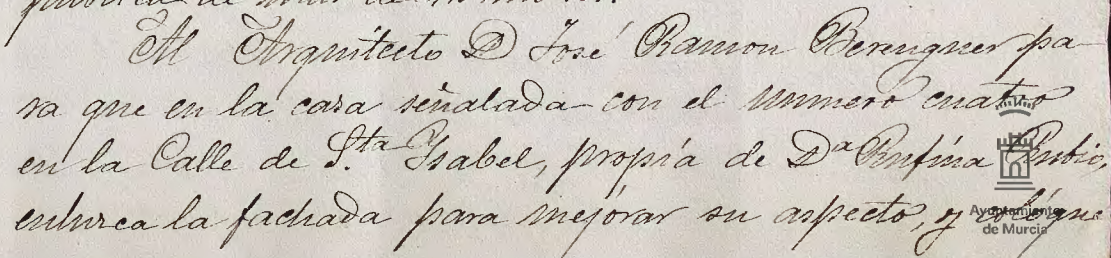 publica de
Al Arquitecto D José Ramon Berenguer pa-
ra que en la casa señalada con el numero cuatro
en la Calle de S.ta Ysabel, propia de Da Rufina Rubio,
enluzca la fachada para mejorar su aspecto, y coloque
Ayuntamiento
de Murcia